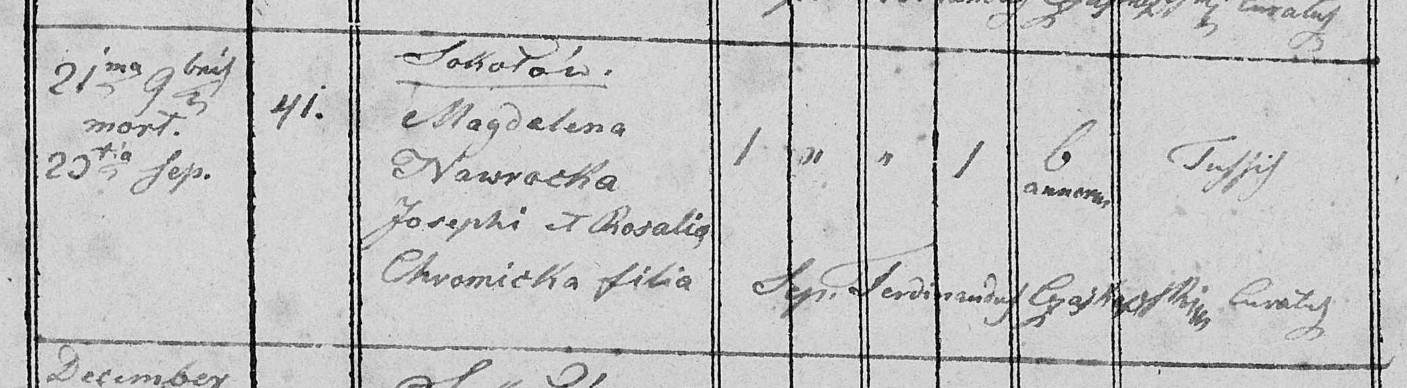 Curatus
21ma 9bris
mort.
23tia Sep.
41.
Sokołów.
Magdalena
Nawrocka
Josephi et Rosalia
Chromicka filia
1 " " 1 6 annorum
Tussis
Sep. Ferdinandus Curatus
December